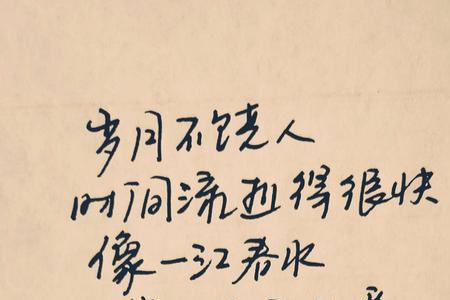 岁月不饶人
时间流逝得很快
像一江春水